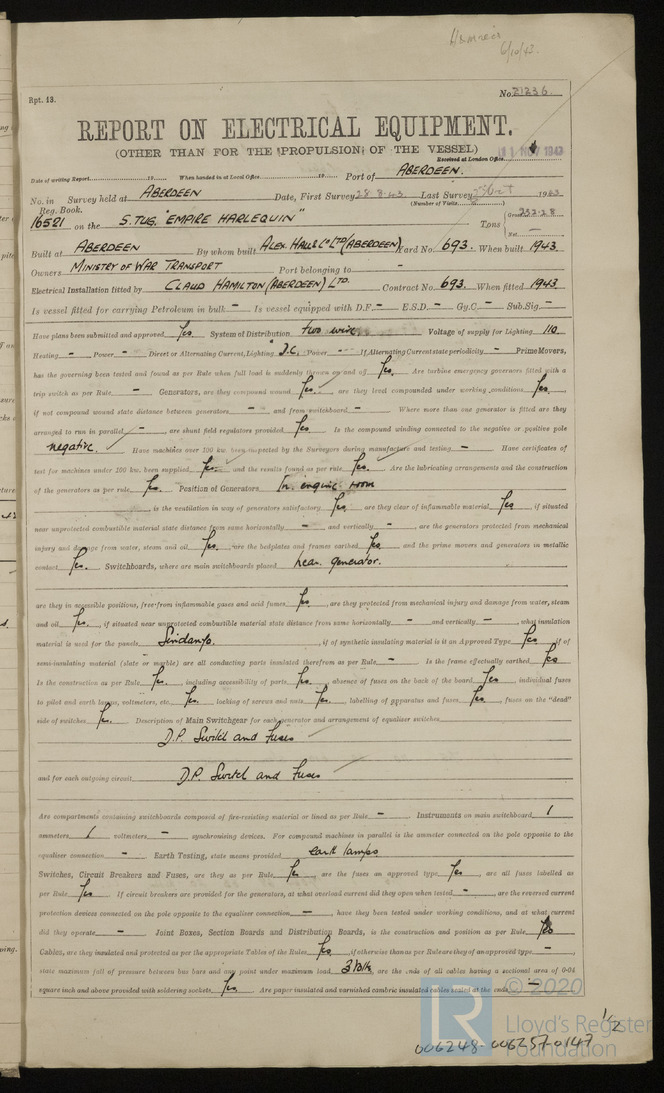 6/10/43.
Rpt. 13.
No. 21236.
REPORT ON ELECTRICAL EQUIPMENT.
(OTHER THAN FOR THE PROPULSION OF THE VESSEL)
Received at London Office
11 NOV 1943
Date of writing Report 19 When handed in at Local Office 19 Port of ABERDEEN.
No. in Survey held at ABERDEEN Date, First Survey 28.8.43 Last Survey 1943
Reg. Book. (Number of Visits)
16521 on the S. TUG. "EMPIRE HARLEQUIN" Tons Gross 232.28
Net —
Built at ABERDEEN By whom built ALEX. HALL & Co LTD (ABERDEEN) Yard No. 693. When built 1943
Owners MINISTRY OF WAR TRANSPORT Port belonging to -
Electrical Installation fitted by CLAUD HAMILTON (ABERDEEN) LTD. Contract No. 693. When fitted 1943
Is vessel fitted for carrying Petroleum in bulk - Is vessel equipped with D.F. - E.S.D. - Gy.C. - Sub.Sig. -
Have plans been submitted and approved Yes System of Distribution two wire Voltage of supply for Lighting 110
Heating - Power - Direct or Alternating Current, Lighting D.C. Power - If Alternating Current state periodicity - Prime Movers,
has the governing been tested and found as per Rule when full load is suddenly thrown on and off Yes. Are turbine emergency governors fitted with a
trip switch as per Rule - Generators, are they compound wound Yes. are they level compounded under working conditions Yes.
if not compound wound state distance between generators - and from switchboard - Where more than one generator is fitted are they
arranged to run in parallel - are shunt field regulators provided Yes. Is the compound winding connected to the negative or positive pole
negative. Have machines over 100 kw. been inspected by the Surveyors during manufacture and testing - Have certificates of
test for machines under 100 kw. been supplied Yes and the results found as per rule Yes. Are the lubricating arrangements and the construction
of the generators as per rule Yes. Position of Generators In engine room
is the ventilation in way of generators satisfactory Yes are they clear of inflammable material Yes if situated
near unprotected combustible material state distance from same horizontally - and vertically -, are the generators protected from mechanical
injury and damage from water, steam and oil Yes, are the bedplates and frames earthed Yes and the prime movers and generators in metallic
contact Yes. Switchboards, where are main switchboards placed near generator.
are they in accessible positions, free from inflammable gases and acid fumes Yes, are they protected from mechanical injury and damage from water, steam
and oil Yes, if situated near unprotected combustible material state distance from same horizontally - and vertically -, what insulation
material is used for the panels Sindanyo., if of synthetic insulating material is it an Approved Type Yes if of
semi-insulating material (slate or marble) are all conducting parts insulated therefrom as per Rule - Is the frame effectually earthed Yes
Is the construction as per Rule Yes, including accessibility of parts Yes, absence of fuses on the back of the board Yes, individual fuses
to pilot and earth lamps, voltmeters, etc. Yes, locking of screws and nuts Yes, labelling of apparatus and fuses Yes, fuses on the "dead"
side of switches Yes. Description of Main Switchgear for each generator and arrangement of equaliser switches
D.P. Switch and Fuses
and for each outgoing circuit D.P. Switch and Fuses
Are compartments containing switchboards composed of fire-resisting material or lined as per Rule - Instruments on main switchboard 1
ammeters 1 voltmeters - synchronising devices. For compound machines in parallel is the ammeter connected on the pole opposite to the
equaliser connection - Earth Testing, state means provided earth lamps
Switches, Circuit Breakers and Fuses, are they as per Rule Yes, are the fuses an approved type Yes, are all fuses labelled as
per Rule Yes If circuit breakers are provided for the generators, at what overload current did they open when tested -, are the reversed current
protection devices connected on the pole opposite to the equaliser connection -, have they been tested under working conditions, and at what current
did they operate - Joint Boxes, Section Boards and Distribution Boards, is the construction and position as per Rule Yes
Cables, are they insulated and protected as per the appropriate Tables of the Rules Yes, if otherwise than as per Rule are they of an approved type -,
state maximum fall of pressure between bus bars and any point under maximum load 3 Volts, are the ends of all cables having a sectional area of 0·04
square inch and above provided with soldering sockets Yes. Are paper insulated and varnished cambric insulated cables sealed at the ends -
© 2020
LR
Lloyd's Register
Foundation
1/2
006248-006257-0147